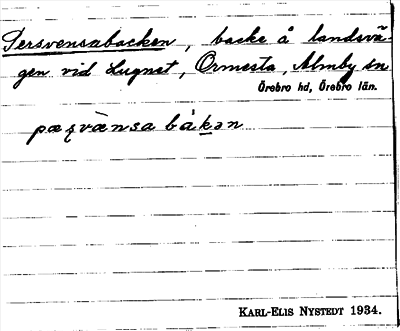 Persvensabacken, backe å landsvä-
gen vid Lugnet, Ormesta, Almby sn
Örebro hd, Örebro län.
pæʂvænsa bákən
KARL-ELIS NYSTEDT 1934.